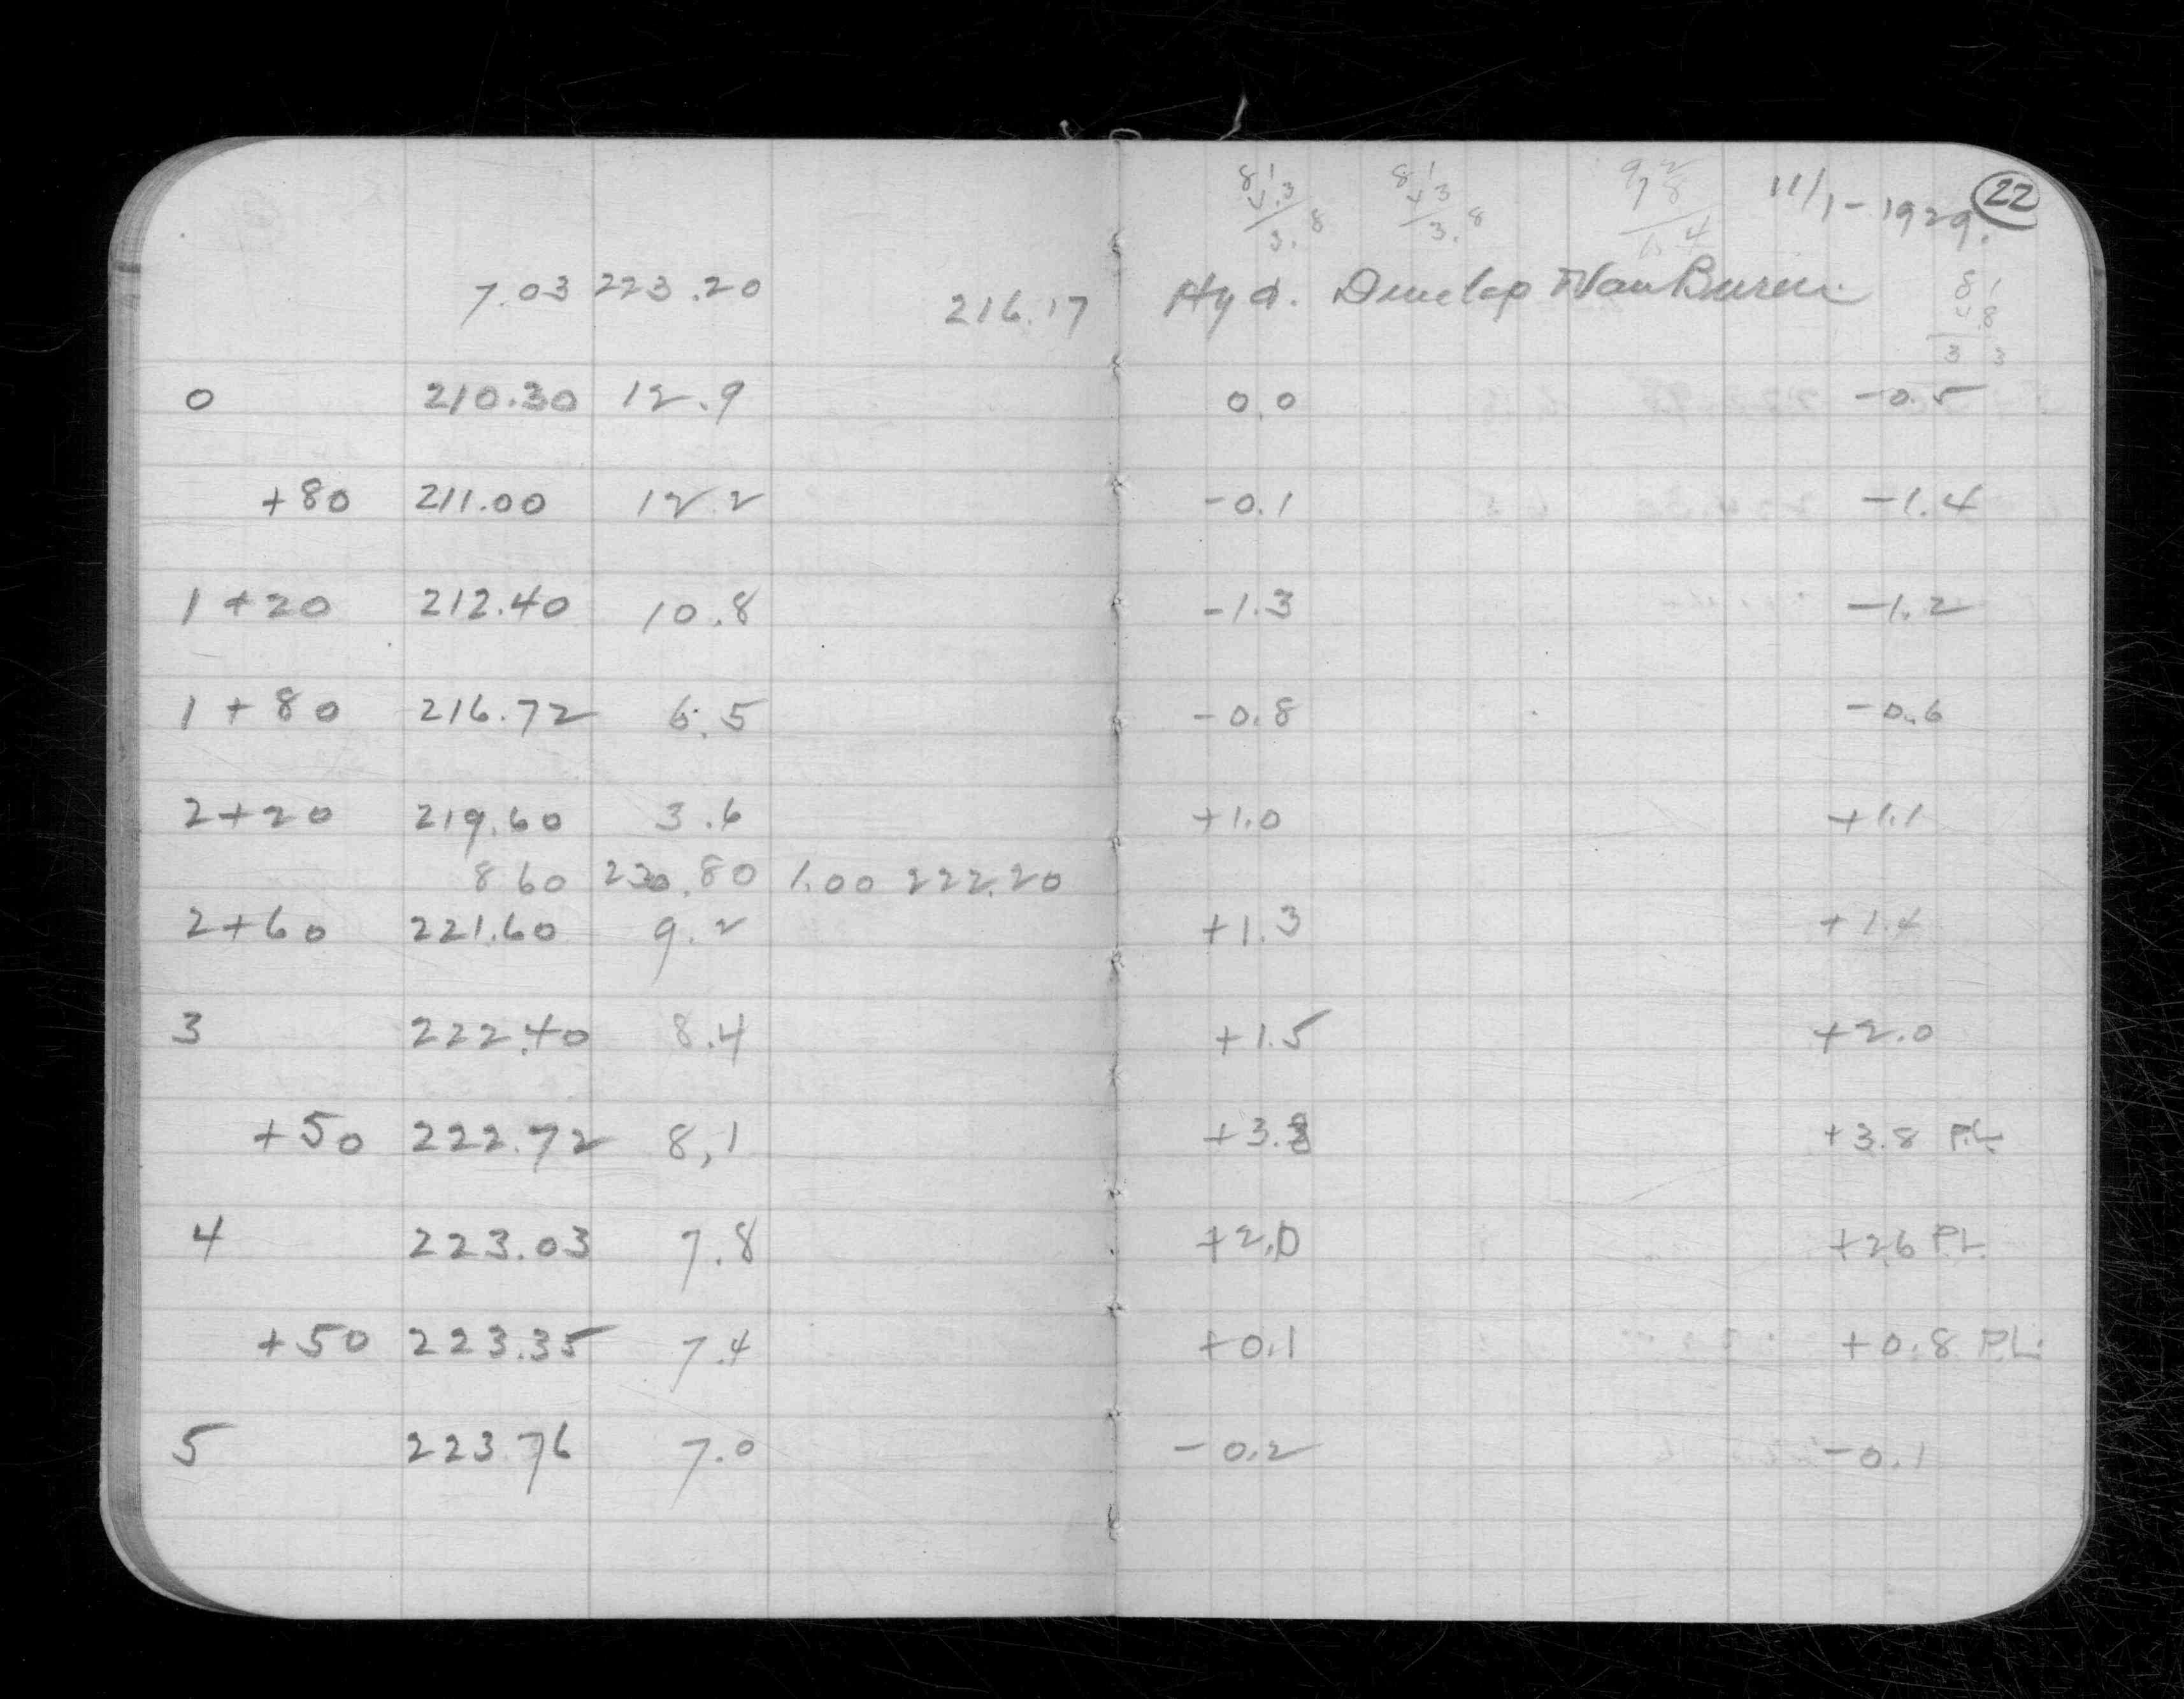 11/1-1929. 22
8.1 8.1 9.2
4.3 4.3 7.8
3.8 3.8 1.4
7.03 223.20 216.17 Hyd. Dunlap & Van Buren
8 1
4.8
3 3
0 210.30 12.9 0.0 -0.5
+80 211.00 12.2 -0.1 -1.4
1+20 212.40 10.8 -1.3 -1.2
1+80 216.72 6.5 -0.8 -0.6
2+20 219.60 3.6 +1.0 +1.1
8 60 230.80 1.00 222.20
2+60 221.60 9.2 +1.3 +1.4
3 222.40 8.4 +1.5 +2.0
+50 222.72 8,1 +3.8 +3.8 P.L.
4 223.03 7.8 +2.0 +2.6 P.L.
+50 223.35 7.4 +0.1 +0.8 P.L.
5 223.76 7.0 -0.2 -0.1